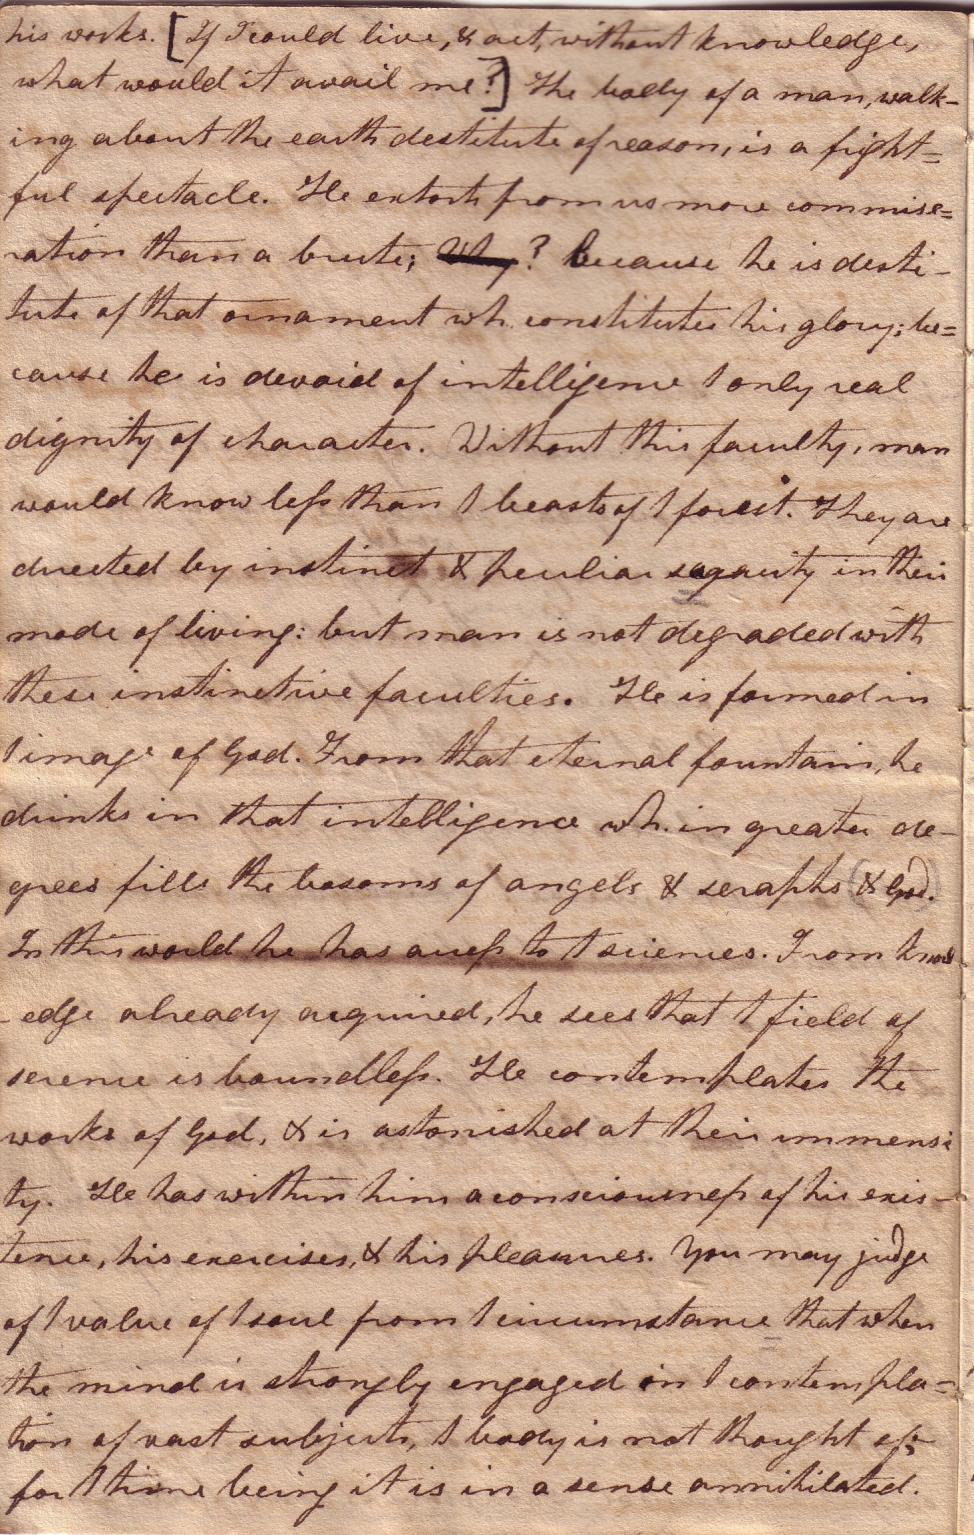 his works. [If I could live, & act, without knowledge,
what would it avail me?] The body of a man, walk-
ing about the earth destitute of reason, is a fright=
ful spectacle. He extorts from us more commise=
ration than a brute; Why? because he is desti-
tute of that ornament wh. constitutes his glory; be=
cause he is devoid of intelligence t only real
dignity of character. Without this faculty, man
would know less than t beasts of t forest. They are
directed by instinct & peculiar sagacity in their
mode of living: but man is not degraded with
these instinctive faculties. He is formed in
t image of God. From that eternal fountain, he
drinks in that intelligence wh. in greater de-
grees fills the bosoms of angels & seraphs (& God).
In this world he has access to t sciences. From knowl
-edge already acquired, he sees that t field of
science is boundless. He contemplates the
works of God, & is astonished at their immensi
ty. He has within him a consciousness of his exis-
tence, his exercises, & his pleasures. You may judge
of t value of t soul from t circumstance that when
the mind is strongly engaged in t contempla=
tion of vast subjects, t body is not thought of;
for t time being it is in a sense annihilated.